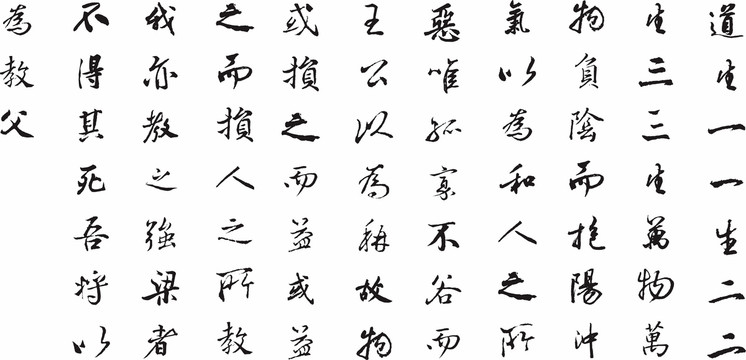 道生一一生二二
生三三生萬物萬
物負陰而抱陽沖
氣以為和人之所
惡唯孤寡不谷而
王公以為稱故物
或損之而益或益
之而損人之所教
我亦教之強梁者
不得其死吾將以
為教父